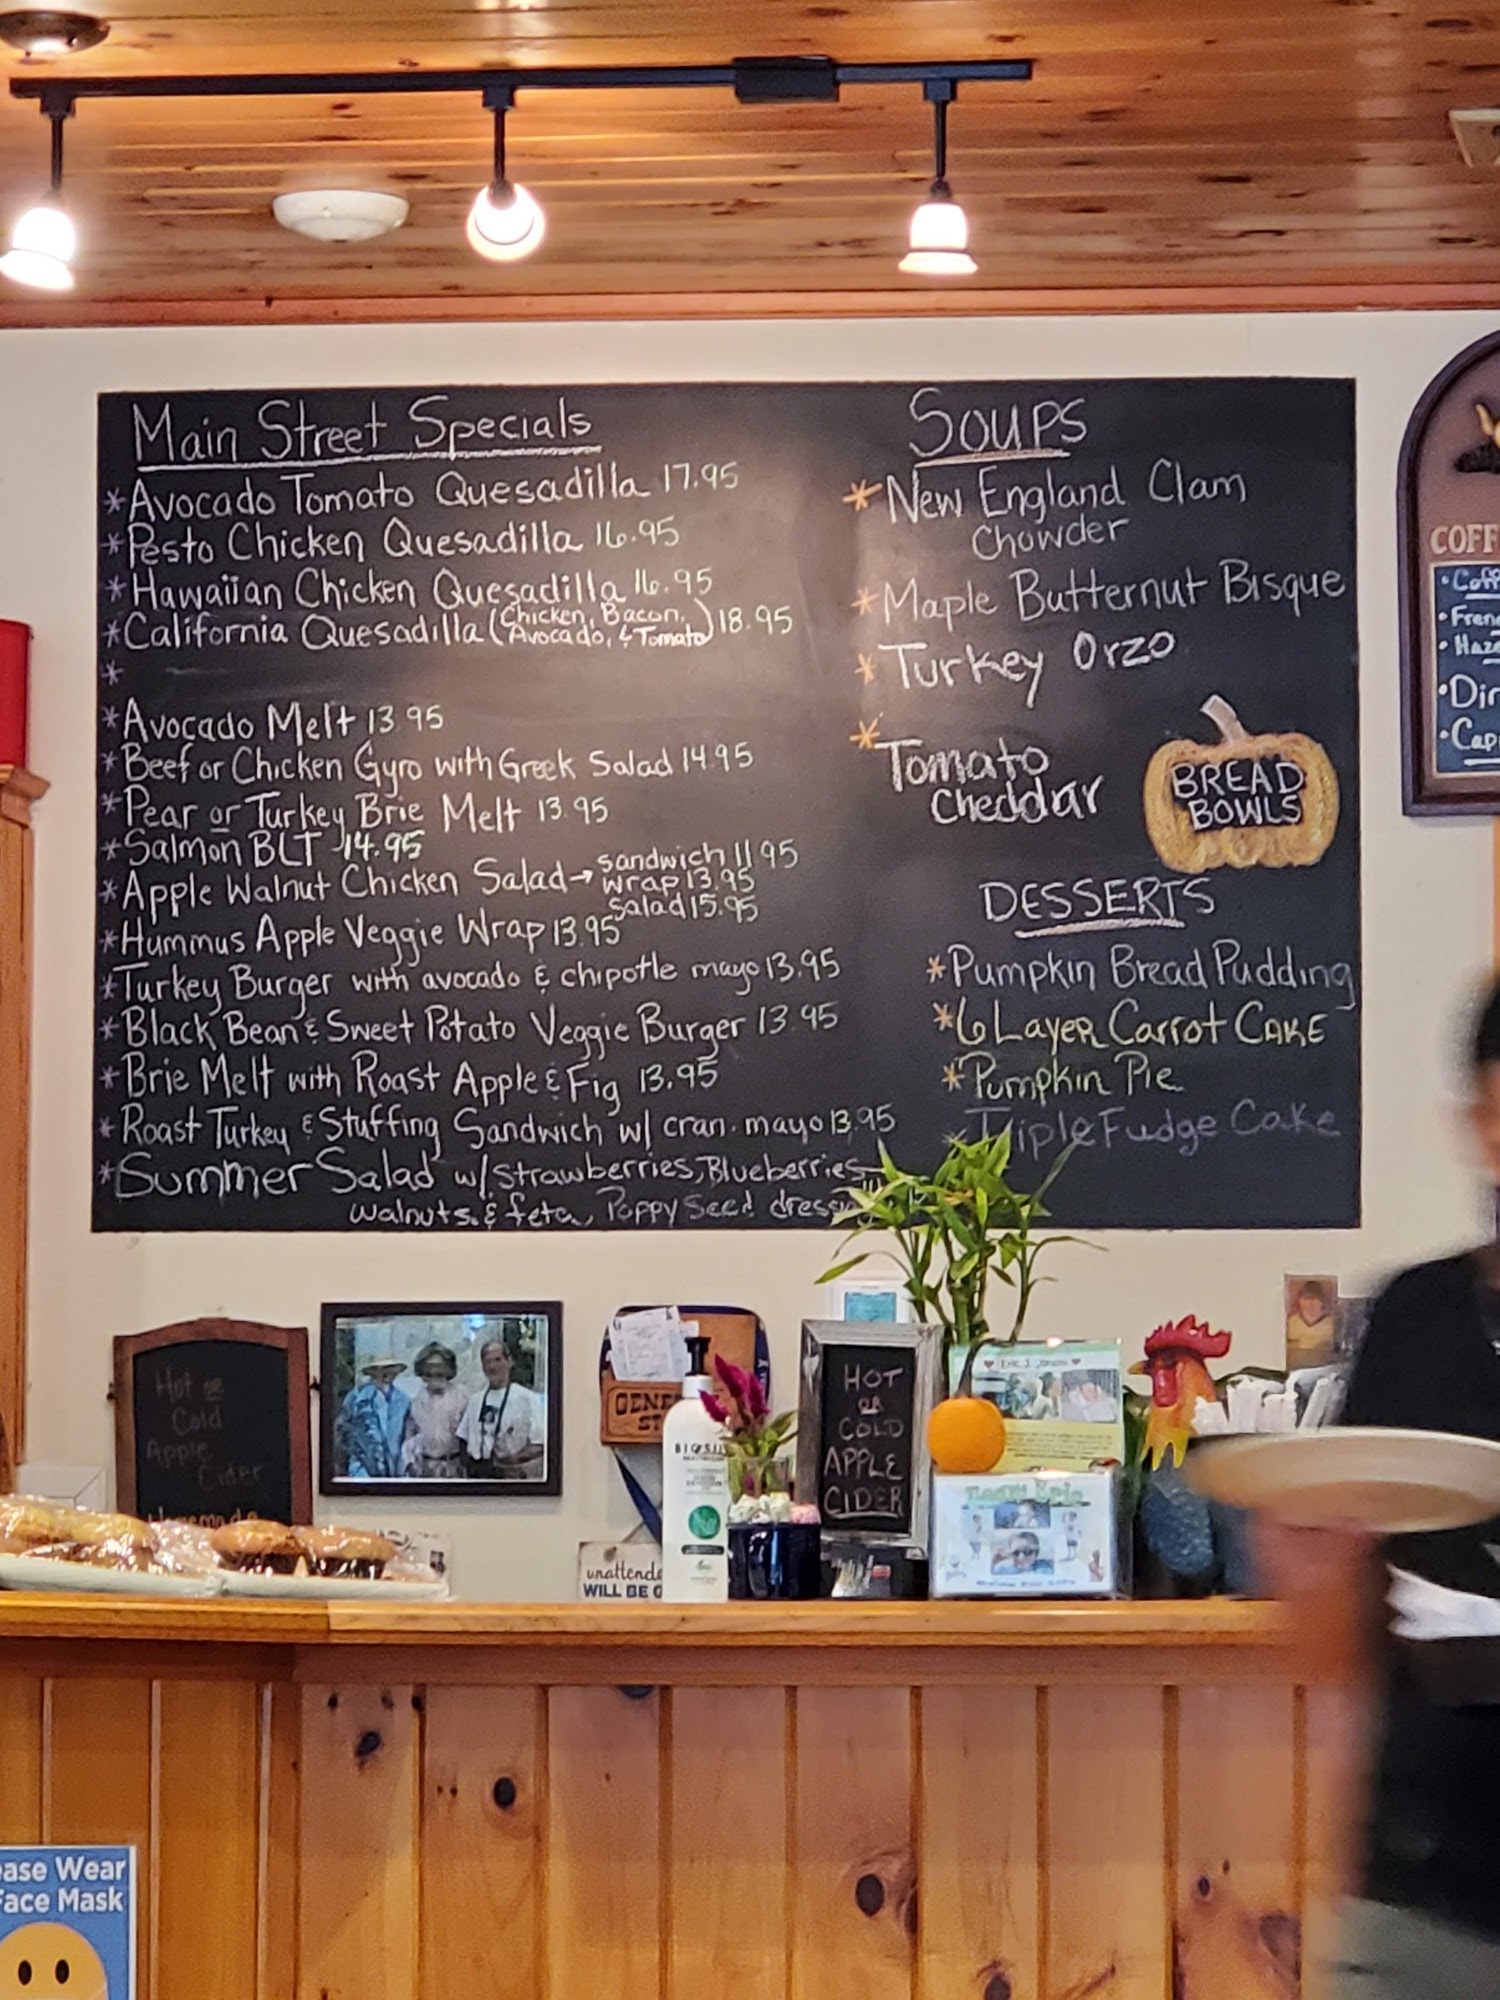 Main Street Specials
*Avocado Tomato Quesadilla 17.95
*Pesto Chicken Quesadilla 16.95
*Hawaiian Chicken Quesadilla 16.95
*California Quesadilla (Chicken, Bacon, Avocado, & Tomato) 18.95
*
*Avocado Melt 13.95
*Beef or Chicken Gyro with Greek Salad 14.95
*Pear or Turkey Brie Melt 13.95
*Salmon BLT 14.95
*Apple Walnut Chicken Salad → sandwich 11.95
wrap 13.95
salad 15.95
*Hummus Apple Veggie Wrap 13.95
*Turkey Burger with avocado & chipotle mayo 13.95
*Black Bean & Sweet Potato Veggie Burger 13.95
*Brie Melt with Roast Apple & Fig 13.95
*Roast Turkey & Stuffing Sandwich w/ cran. mayo 13.95
*Summer Salad w/ strawberries, Blueberries
walnuts & feta, Poppy Seed dressing
Soups
*New England Clam
Chowder
*Maple Butternut Bisque
*Turkey Orzo
*Tomato
Cheddar
BREAD
BOWLS
DESSERTS
*Pumpkin Bread Pudding
*6 Layer Carrot Cake
*Pumpkin Pie
*Triple Fudge Cake
COFF
Hot or
Cold
Apple
Cider
Homemade
HOT
OR
COLD
APPLE
CIDER
unattende
WILL BE
Eric J. Jones
ease Wear
Face Mask